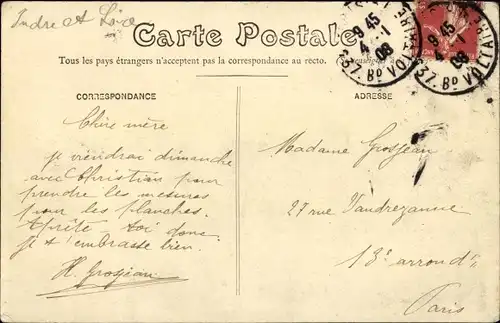 Indre et Loire
Carte Postale
Tous les pays étrangers n'acceptent pas la correspondance au recto.
9 45
4 -1
08
37. BD VOLTAIRE
9 45
4 -1
08
37. BD VOLTAIRE
CORRESPONDANCE
Chère mère
je viendrai dimanche
avec Christian pour
prendre les mesures
pour les planches.
Aprête-toi donc.
je t'embrasse bien.
H. Grosjean
ADRESSE
Madame Grosjean
27 rue Vandrezanne
13e arrondt
Paris